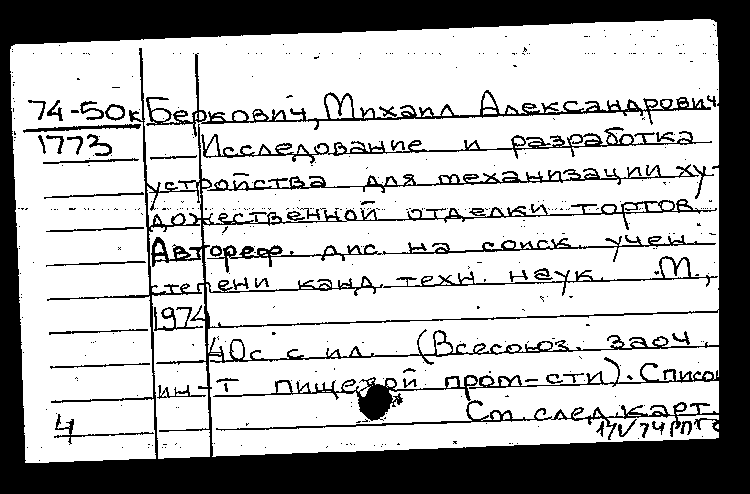 74-50к Беркович, Михаил Александрович.
1773 Исследование и разработка
устройства для механизации ху-
дожественной отделки тортов.
Автореф. дис. на соиск. учен.
степени канд. техн. наук. М.,
1974.
40с с ил. (Всесоюз. заоч.
ин-т пищевой пром-сти). Список
См. след. карт.
4